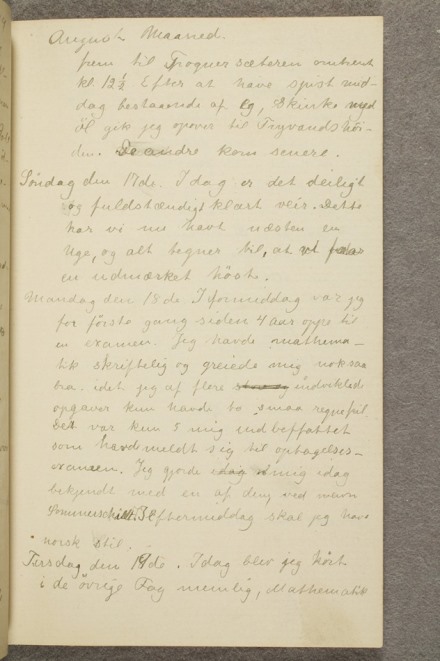 August Maaned.
frem til Frognersæteren omtrent
kl. 12 1/2 Efter at have spist mid-
dag bestaaende af Eg, Skinke med
öl gik jeg opover til Tryvandshöi-
den. De andre kom senere.
Söndag den 17de. Idag er det deiligt
og fuldstændigt klart veir. Dette
har vi nu havt næsten en
Uge, og alt tegner til, at vi faar
en udmærket höst.
Mandag den 18de Iformiddag var jeg
for förste gang siden 4 aar oppe til
en examen. Jeg havde mathema-
tik skriftelig og greiede mig noksaa
bra. idet jeg af flere udviklede
opgaver kun havde to smaa regnefeil.
Det var kun 5 mig indbefattet
som havde meldt sig til optagelses-
examen. Jeg gjorde mig idag
bekjendt med en af dem ved navn
Sommerschild. Ieftermiddag skal jeg have
norsk stil.
Tirsdag den 19de. Idag blev jeg hört
i de övrige Fag nemlig, Mathematik